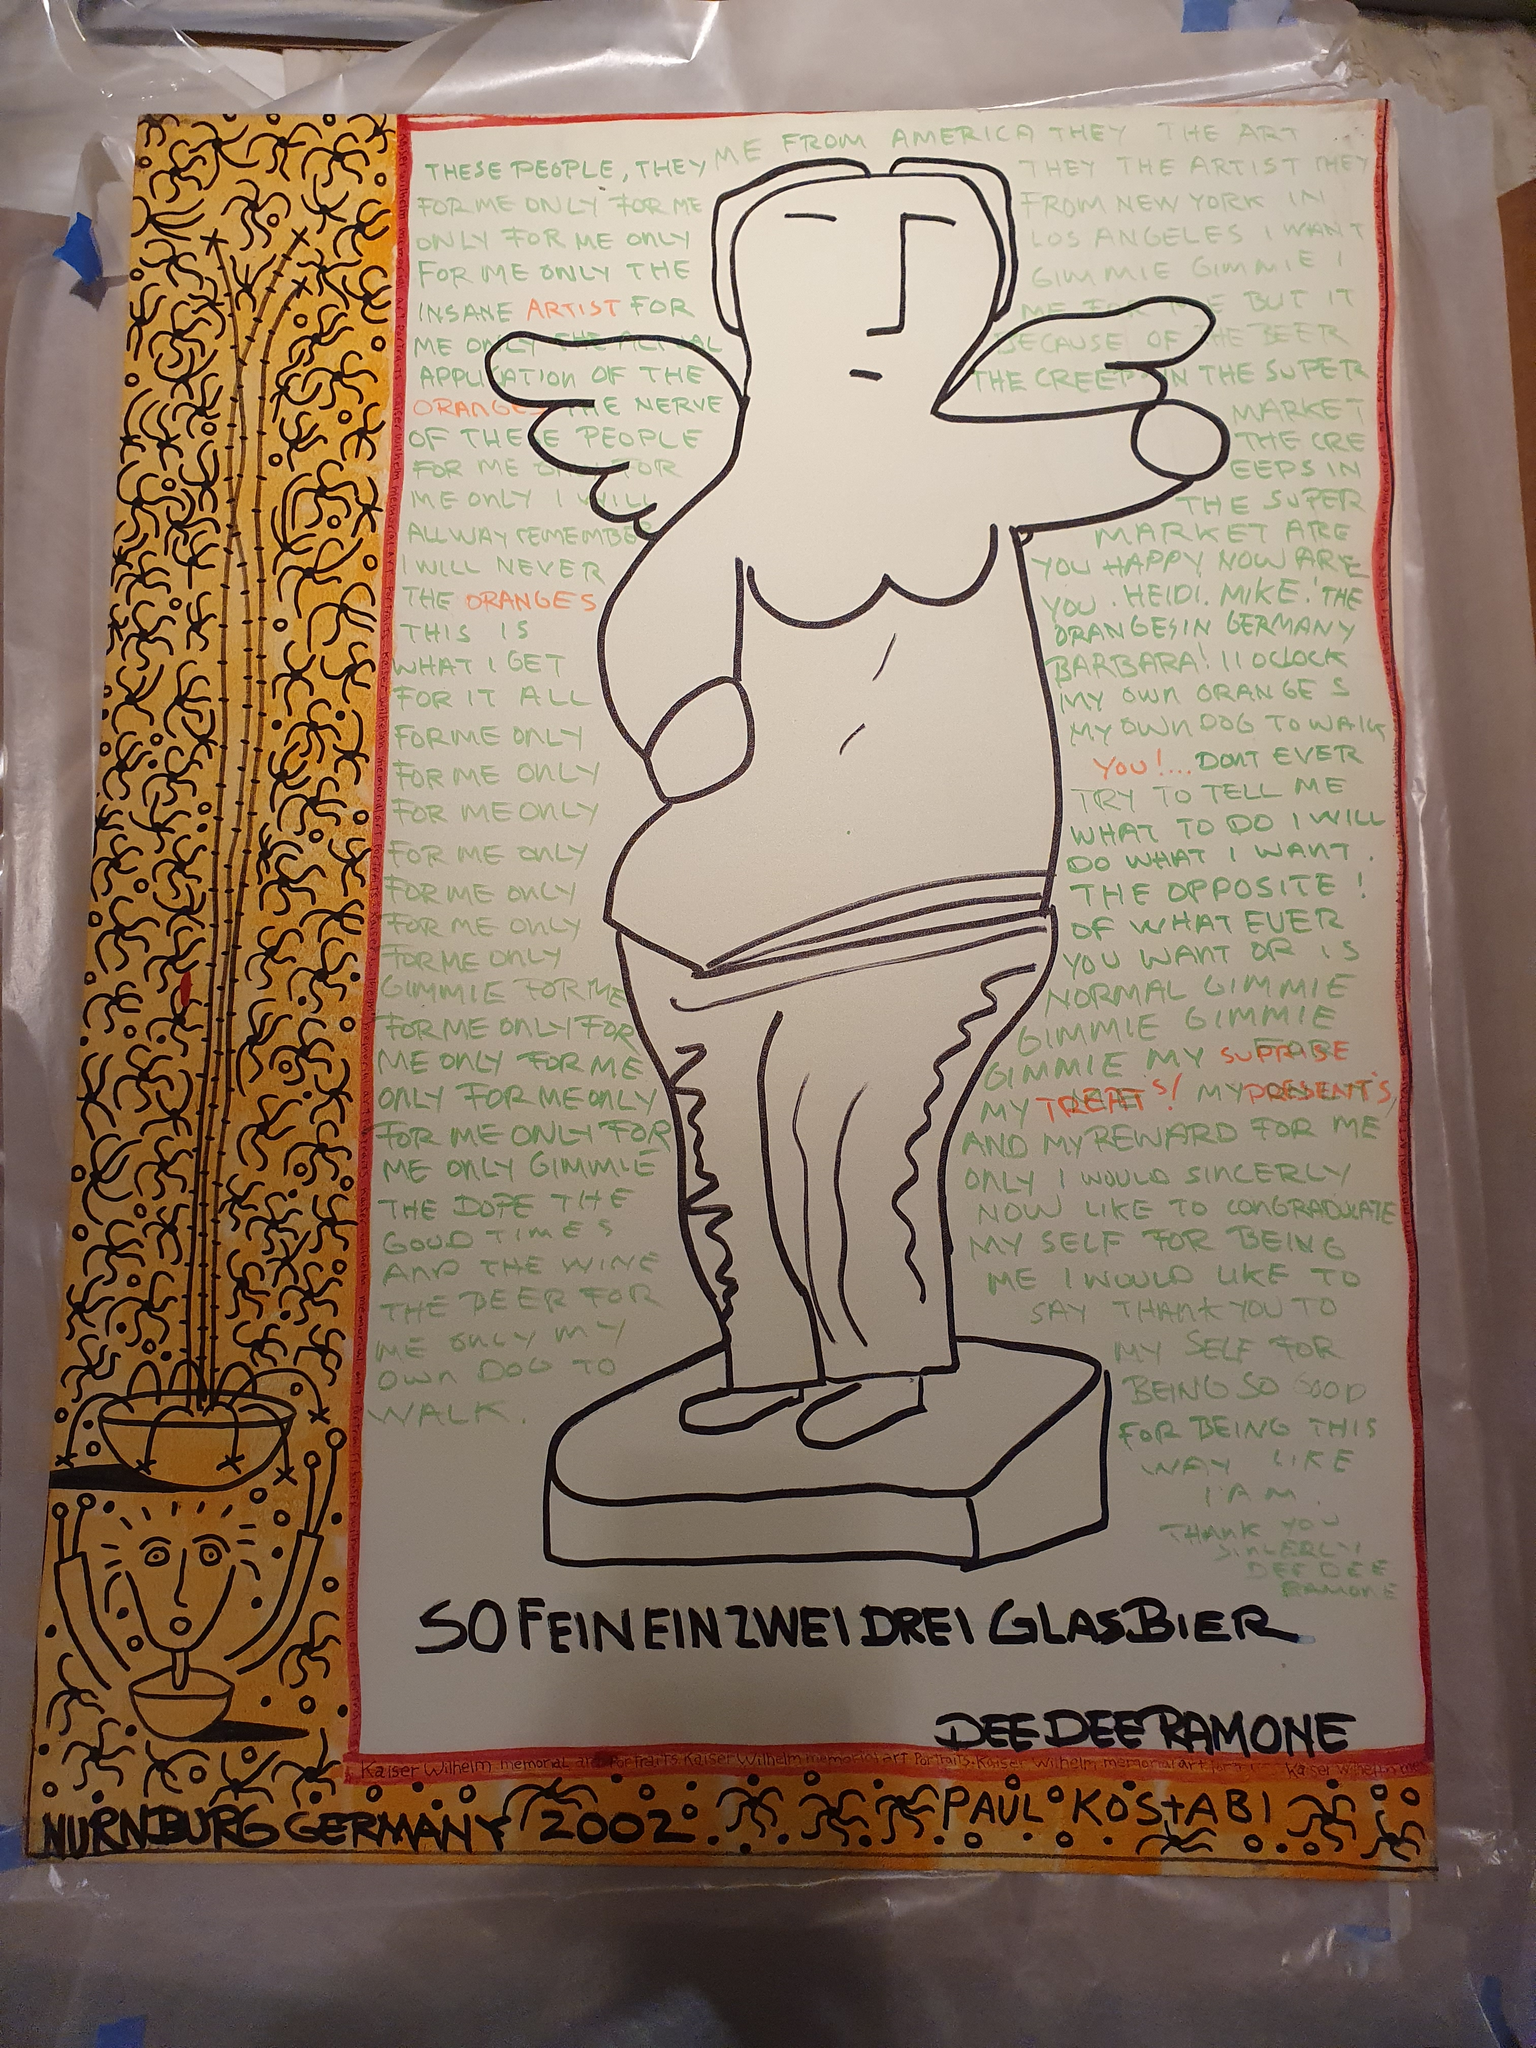 ME FROM AMERICA THEY THE ART
THESE PEOPLE, THEY
FOR ME ONLY FOR ME
ONLY FOR ME ONLY
FOR ME ONLY THE
INSANE ARTIST FOR
ME ONLY THE ACTUAL
APPLICATION OF THE
ORANGES THE NERVE
OF THESE PEOPLE
FOR ME ONLY FOR
ME ONLY I WILL
ALLWAY REMEMBE
I WILL NEVER
THE ORANGES
THIS IS
WHAT I GET
FOR IT ALL
FOR ME ONLY
FOR ME ONLY
FOR ME ONLY
FOR ME ONLY
FOR ME ONLY
FOR ME ONLY
FOR ME ONLY
GIMMIE FOR ME
FOR ME ONLY FOR
ME ONLY FOR ME
ONLY FOR ME ONLY
FOR ME ONLY FOR
ME ONLY GIMMIE
THE DOPE THE
GOOD TIMES
AND THE WINE
THE BEER FOR
ME ONLY MY
OWN DOG TO
WALK.
THEY THE ARTIST THEY
FROM NEW YORK IN
LOS ANGELES I WANT
GIMMIE GIMMIE I
ME FOR ME BUT IT
BECAUSE OF THE BEER
THE CREEP IN THE SUPER
MARKET
THE CRE
EEPS IN
THE SUPER
MARKET ARE
YOU HAPPY NOW ARE
YOU. HEIDI. MIKE! THE
ORANGES IN GERMANY
BARBARA! 11 OCLOCK
MY OWN ORANGES
MY OWN DOG TO WALK
YOU!... DONT EVER
TRY TO TELL ME
WHAT TO DO I WILL
DO WHAT I WANT.
THE OPPOSITE!
OF WHAT EVER
YOU WANT OR IS
NORMAL GIMMIE
GIMMIE GIMMIE
GIMMIE MY SUPRISE
MY TREAT'S! MY PRESENT'S,
AND MY REWARD FOR ME
ONLY I WOULD SINCERLY
NOW LIKE TO CONGRADULATE
MY SELF FOR BEING
ME I WOULD LIKE TO
SAY THANK YOU TO
MY SELF FOR
BEING SO GOOD
FOR BEING THIS
WAY LIKE
I AM.
THANK YOU
SINCERLY
DEE DEE
RAMONE
SO FEIN EIN ZWEI DREI GLAS BIER
DEE DEE RAMONE
Kaiser Wilhelm memorial art Portraits. Kaiser Wilhelm memorial art Portraits. Kaiser Wilhelm memorial art Kaiser Wilhelm
NURNBURG GERMANY 2002 PAUL KOSTABI